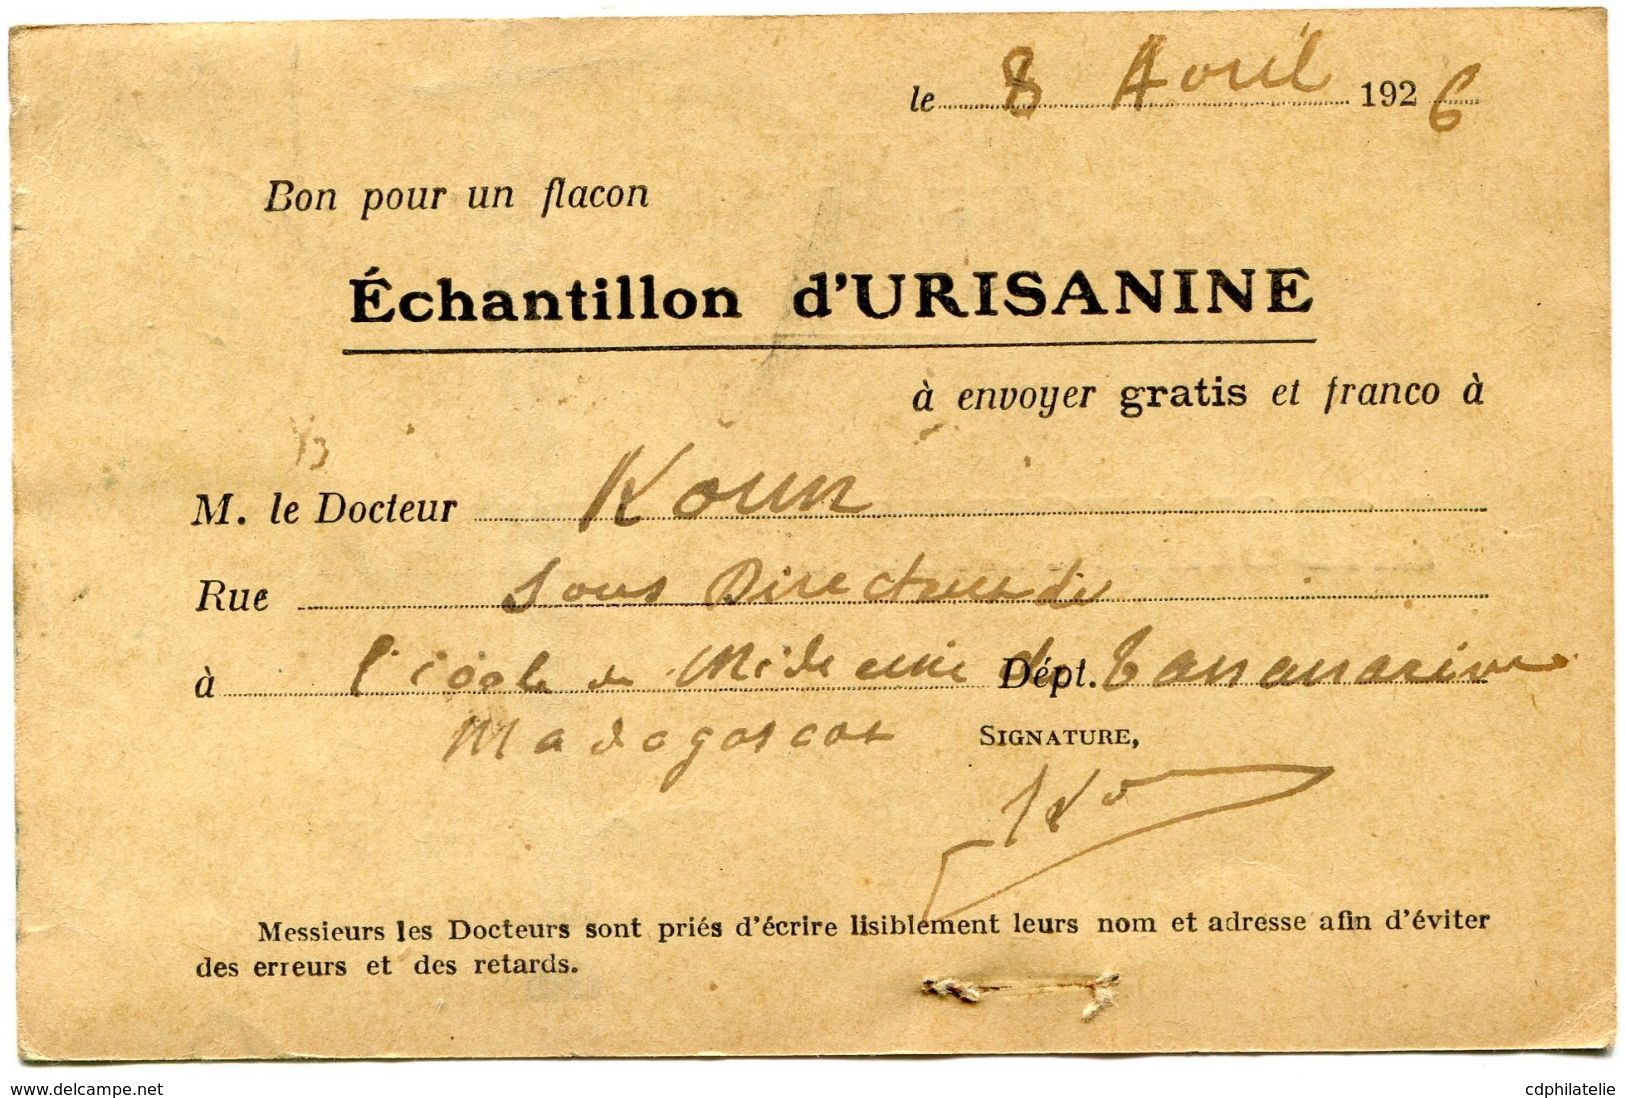 le 8 Avril 1926
Bon pour un flacon
Échantillon d'URISANINE
à envoyer gratis et franco à
M. le Docteur Koun
Rue Sous Directeur de
à l'école de Médecine de Dépt. Tananarive
Madagascar SIGNATURE,
Messieurs les Docteurs sont priés d'écrire lisiblement leurs nom et adresse afin d'éviter
des erreurs et des retards.
www.delcampe.net cdphilatelie